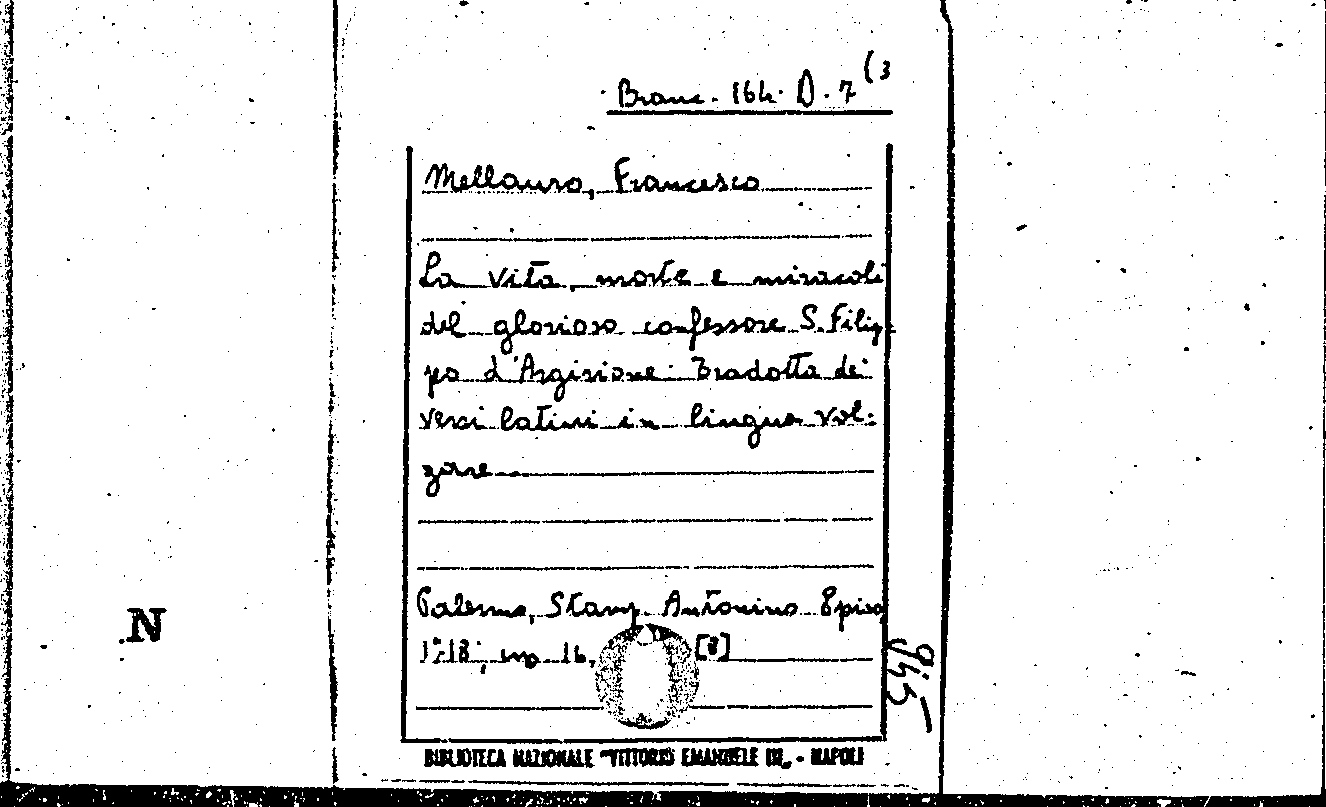 Branc. 164. D. 7 (3
Mellauro, Francesco
La vita, morte e miracoli
del glorioso confessore S. Filip-
po d'Argirione. Tradotta dei
versi latini in lingua vol-
gare
Palermo, Stamp. Antonino Epiro
1718, in 16, [8]
N
945
BIBLIOTECA NAZIONALE "VITTORIO EMANUELE III„ - NAPOLI